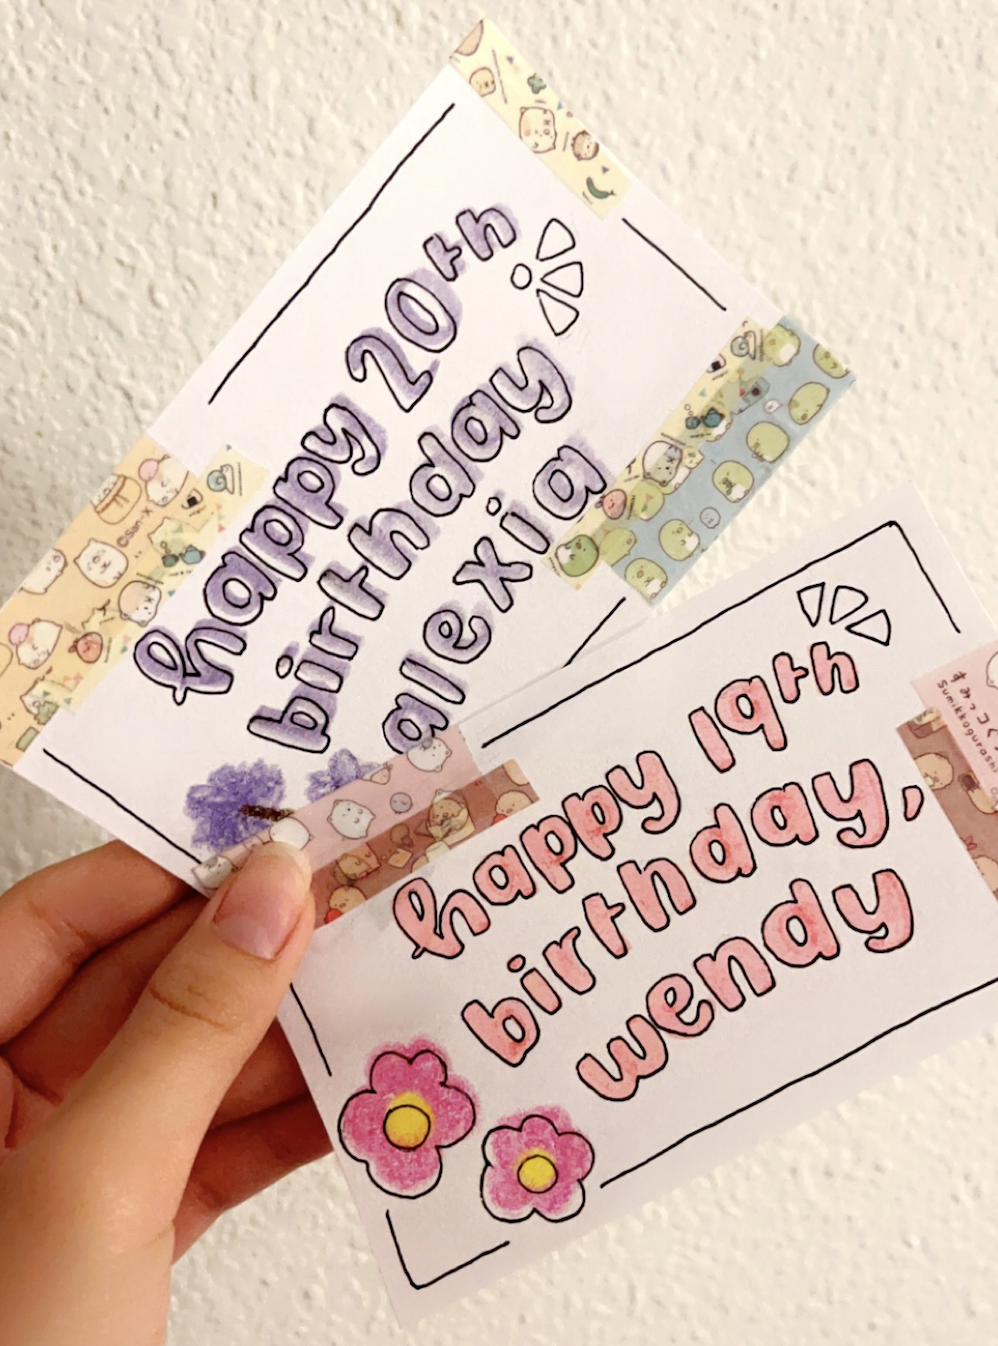 happy 20th
birthday
alexia
©San-X
happy 19th
birthday,
wendy
すみっコぐら
Sumikkogurashi